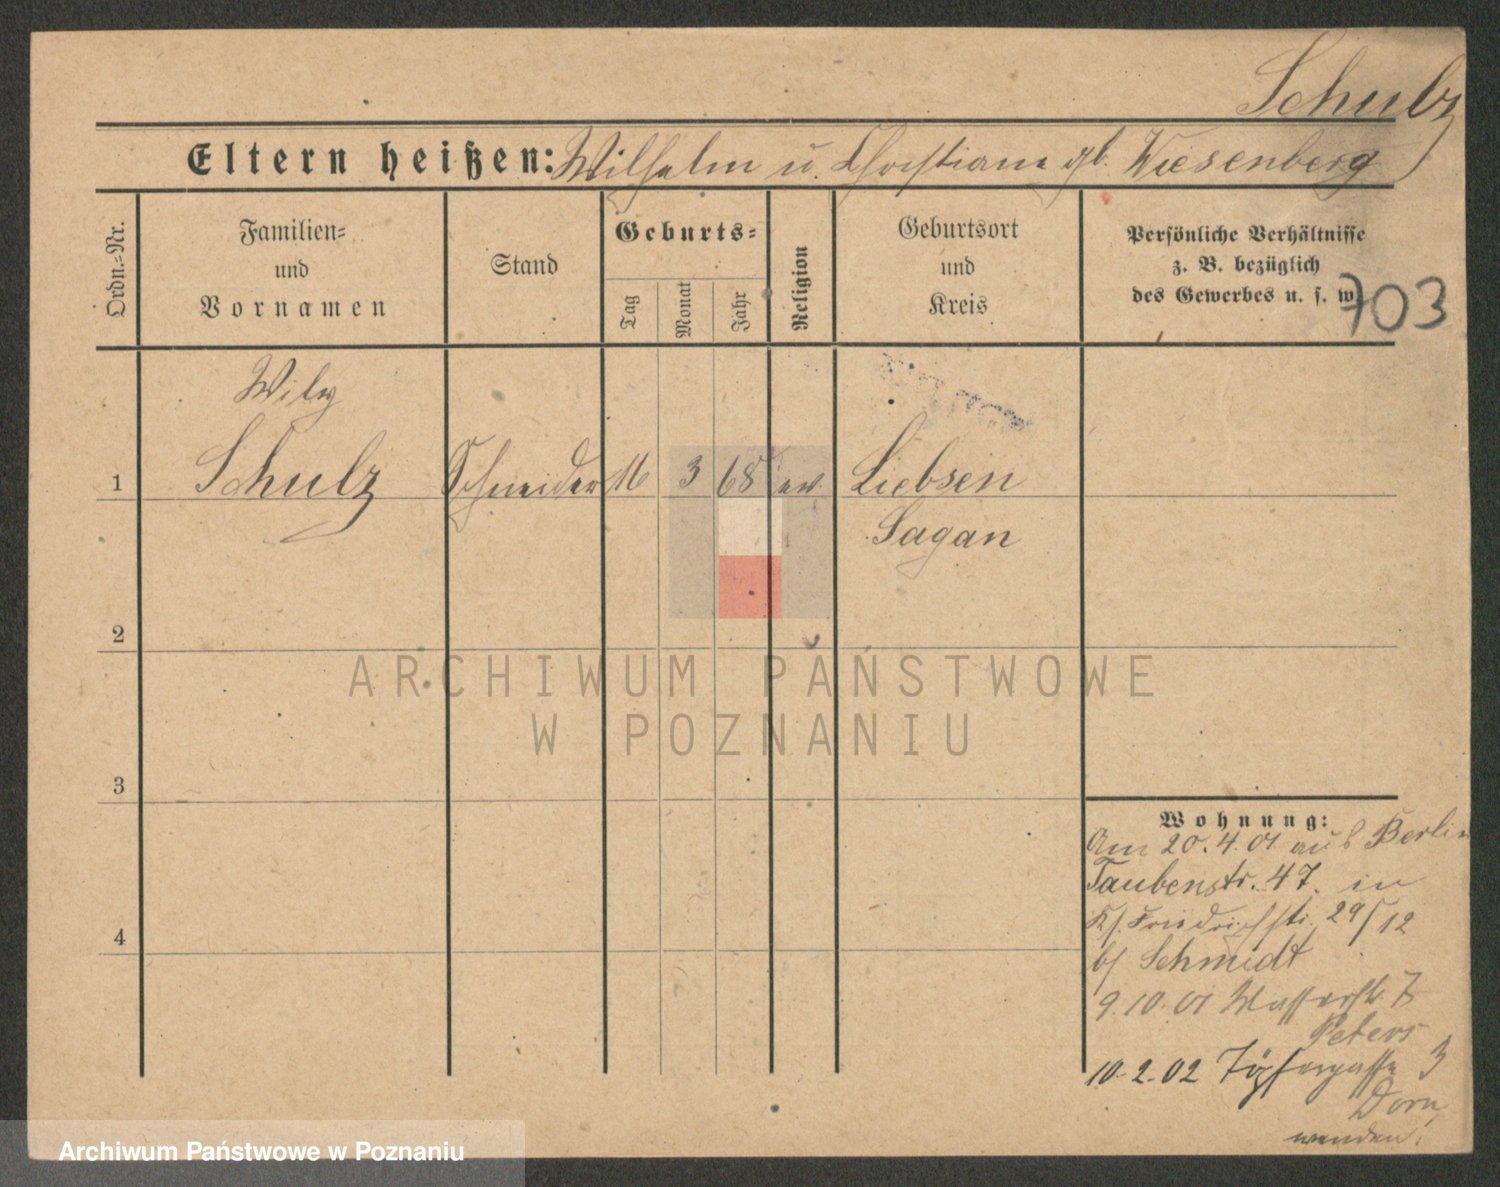 Schulz
Eltern heißen: Wilhelm u. Christiane gb. Wiesenberg
Ordn.-Nr.
Familien-
und
Vornamen
Stand
Geburts-
Tag
Monat
Jahr
Religion
Geburtsort
und
Kreis
Persönliche Verhältnisse
z. B. bezüglich
des Gewerbes u. s. w.
703
Wily
1 Schulz Schneider 16 3 68 ev Liebsen
Sagan
2
3
4
Wohnung:
Am 20.4.01 aus Berlin
Taubenstr. 47. in
Friedrichstr. 29/12
b/ Schmidt
9.10.01 Wasserstr. 7
Peters
10.2.02 Töpfergasse 3
Dorn
wenden!
ARCHIWUM PAŃSTWOWE
W POZNANIU
Archiwum Państwowe w Poznaniu